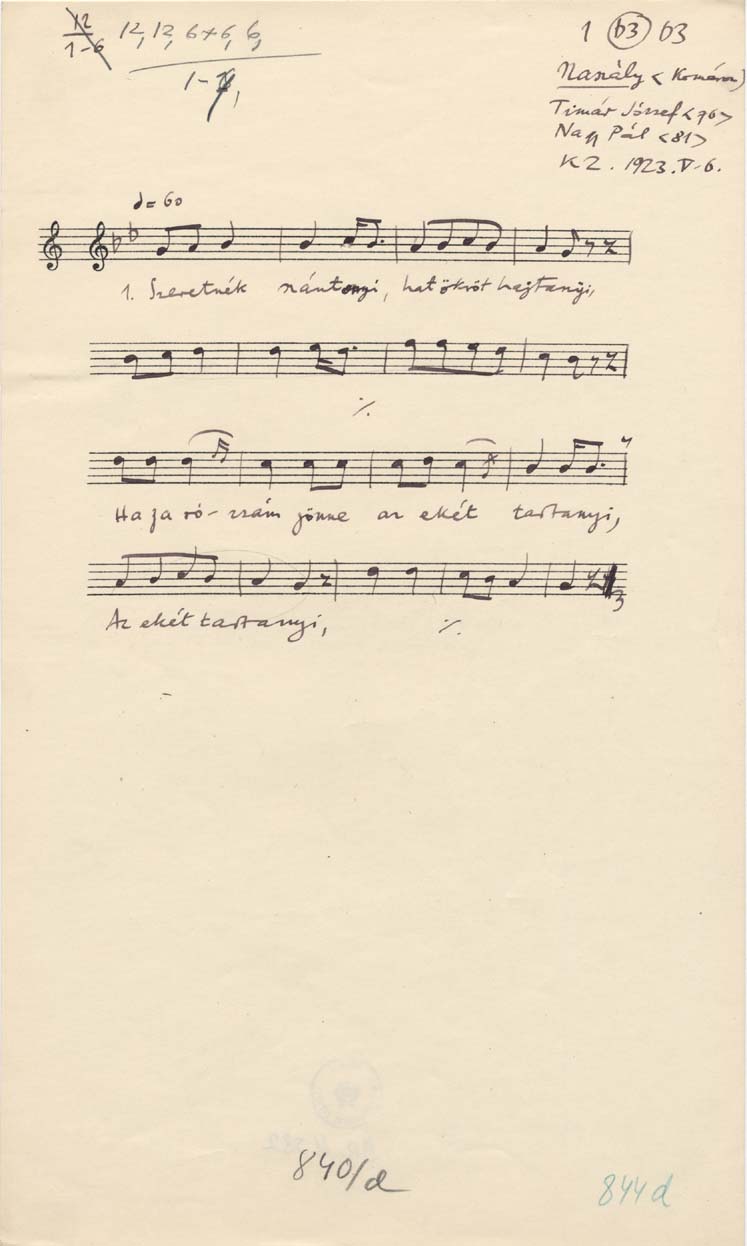 12
1-6
12, 12, 6+6, 6,
1 b3 b3
Naszály < Komárom)
Timár József <76>
Nagy Pál <81>
KZ. 1923. V-6.
= 60
1. Szeretnék szántonyi, hat ökröt hajtanyi,
٪.
Ha ja ró- zsám jönne az ekét tartanyi,
Az ekét tartanyi, ٪.
840/d
844d